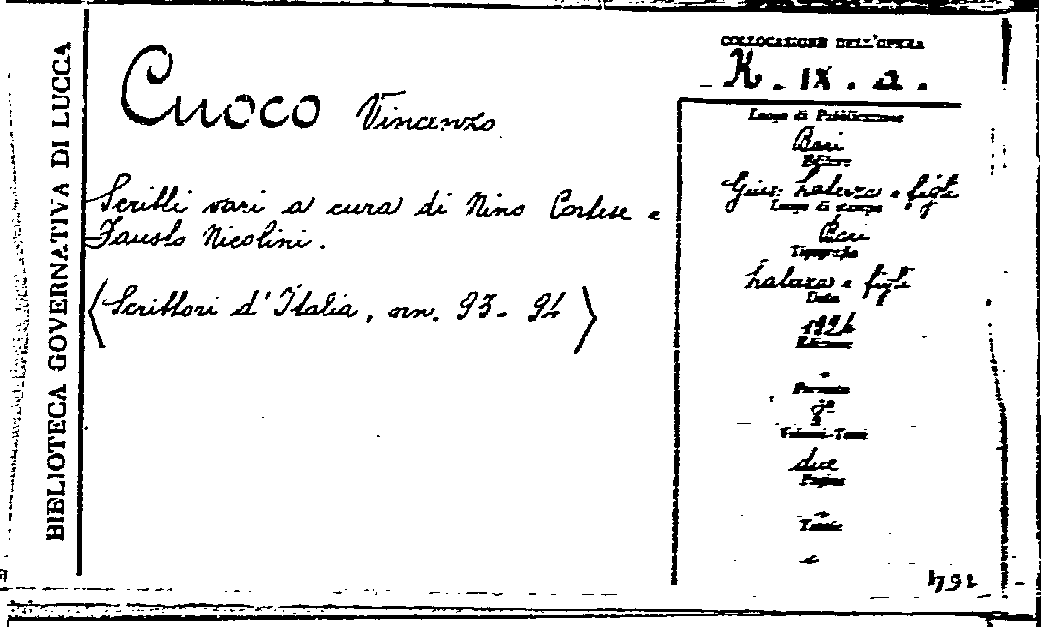 BIBLIOTECA GOVERNATIVA DI LUCCA
Cuoco Vincenzo
Scritti vari a cura di Nino Cortese e
Fausto Nicolini.
<Scrittori d'Italia, nn. 93-94>
COLLOCAZIONE DELL'OPERA
K. IX. a.
Luogo di Pubblicazione
Bari
Editore
Gius. Laterza e figli
Luogo di stampa
Bari
Tipografia
Laterza e figli
Data
1924
Edizione
-
Formato
8°
Volumi-Tomi
due
Pagine
-
Tavole
-